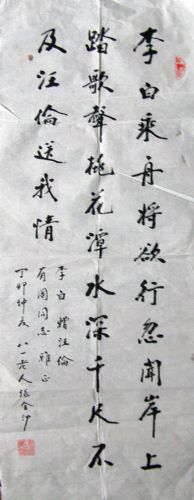 李白乘舟將欲行忽聞岸上
踏歌聲桃花潭水深千尺不
及汪倫送我情
李白贈汪倫
有國同志雅正
丁卯仲夏 八一老人張金